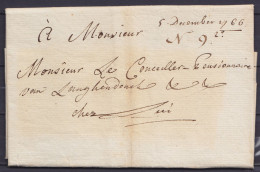 5 December 1766
à Monsieur
N 9.
Monsieur Le Conceller Pensionnaire
van Langhendonck & &
chez Lui